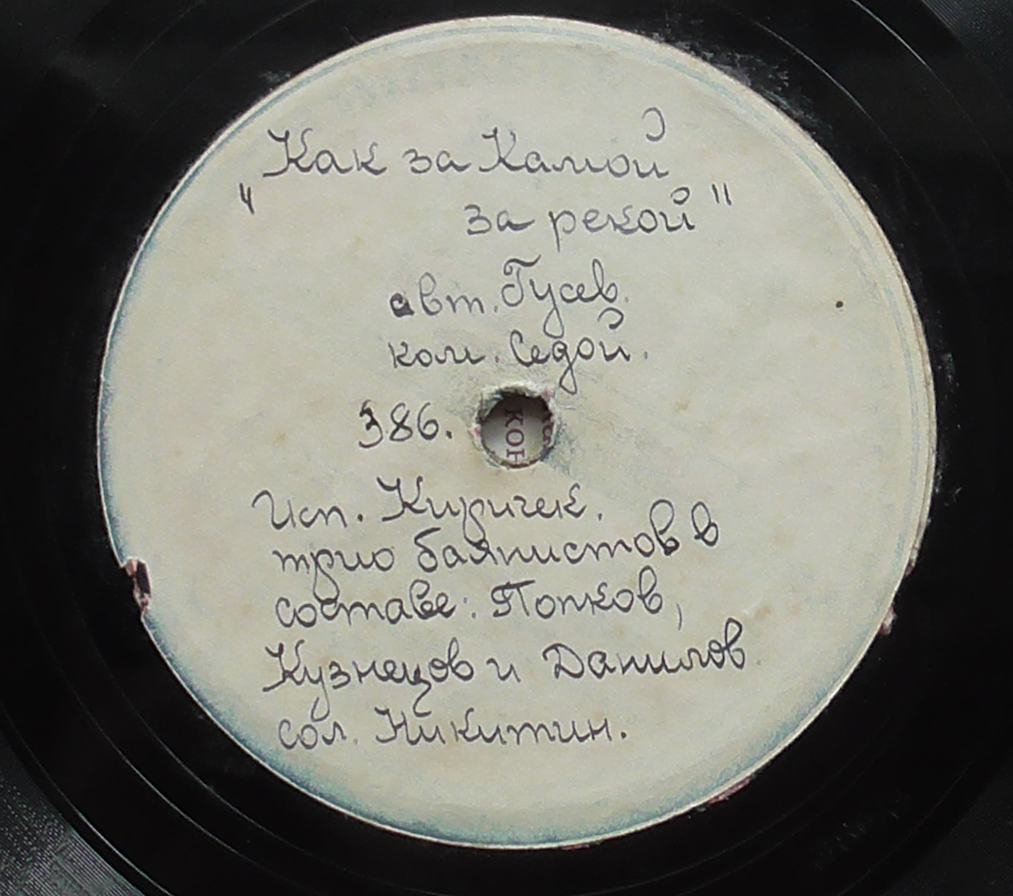 „Как за Камой
за рекой"
авт. Гусев.
ком. Седой.
386.
КОН
Исп. Киричек.
трио баянистов в
составе: Попков,
Кузнецов и Данилов
сол. Никитин.